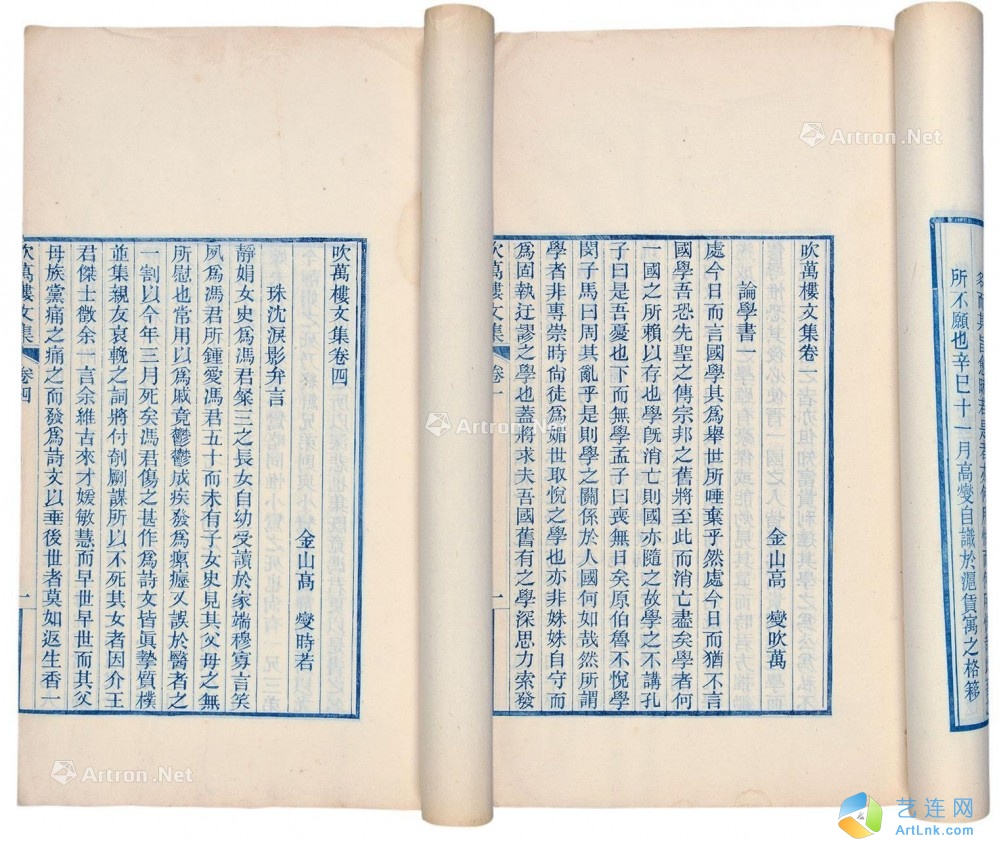 所不願也辛巳十一月高燮自識於滬賃寓之格簃
吹萬樓文集卷一
金山高 燮吹萬
論學書一
處今日而言國學其爲舉世所唾棄乎然處今日而猶不言
國學吾恐先聖之傳宗邦之舊將至此而消亡盡矣學者何
一國之所賴以存也學旣消亡則國亦隨之故學之不講孔
子曰是吾憂也下而無學孟子曰喪無日矣原伯魯不悅學
閔子馬曰周其亂乎是則學之關係於人國何如哉然所謂
學者非專崇時尙徒爲媚世取悅之學也亦非姝姝自守而
爲固執迂謬之學也蓋將求夫吾國舊有之學深思力索發
吹萬樓文集 卷一 一
吹萬樓文集卷四
金山高 燮時若
珠沈淚影弁言
靜娟女史爲馮君粲三之長女自幼受讀於家端穆寡言笑
夙爲馮君所鍾愛馮君五十而未有子女史見其父母之無
所慰也常用以爲戚竟鬱鬱成疾發爲瘰癧又誤於醫者之
一割以今年三月死矣馮君傷之甚作爲詩文皆眞摯質樸
並集親友哀輓之詞將付剞劂謀所以不死其女者因介王
君傑士徵余一言余維古來才媛敏慧而早世早世而其父
母族黨痛之痛之而發爲詩文以垂後世者莫如返生香一
吹萬樓文集 卷四 一
Artron.Net
Artron.Net
Artron.Net
艺连网
ArtLnk.com